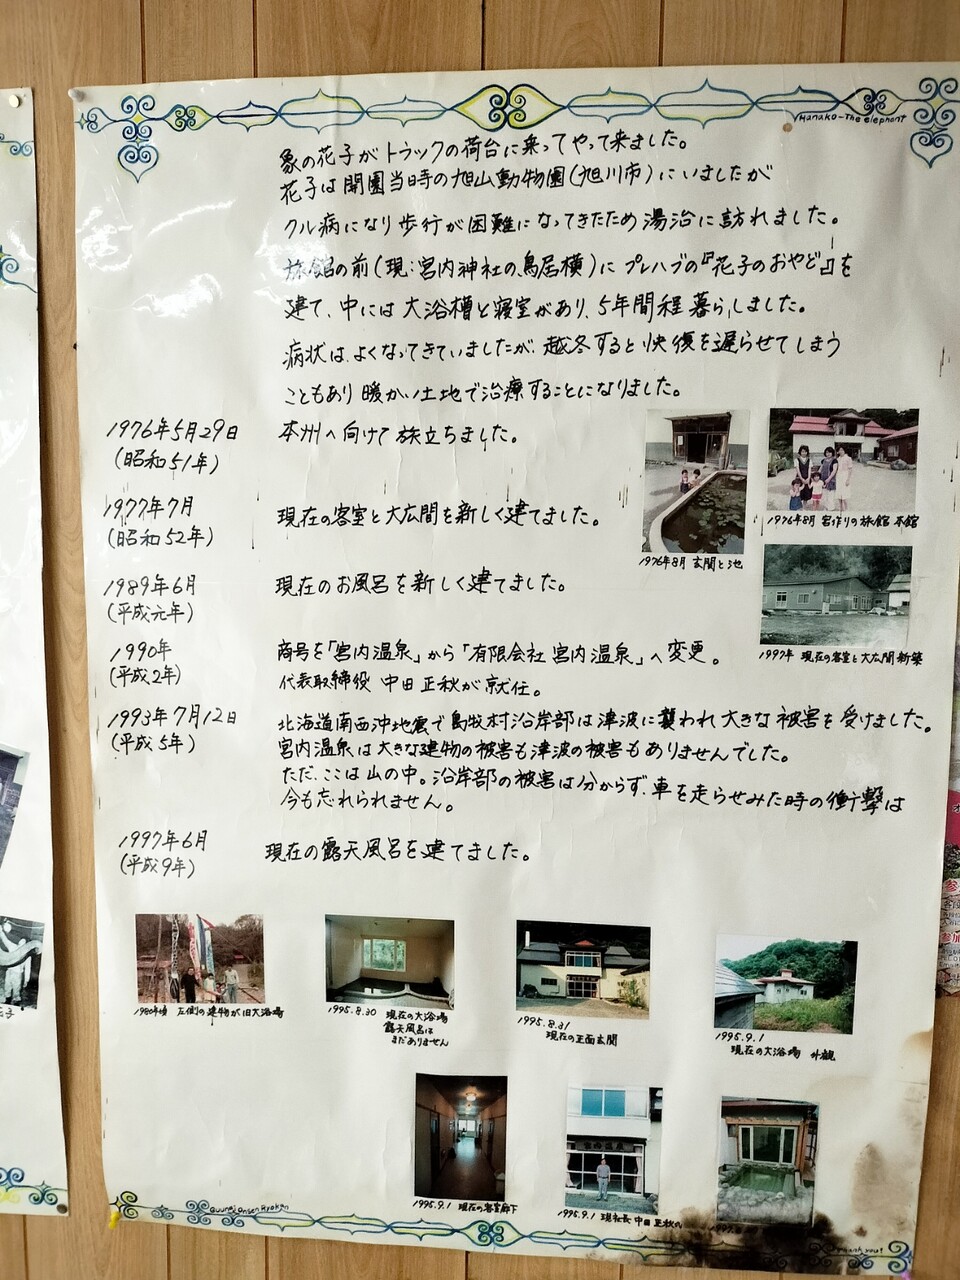 Hanako-The elephant
象の花子がトラックの荷台に乗ってやって来ました。
花子は開園当時の旭山動物園(旭川市)にいましたが
クル病になり歩行が困難になってきたため湯治に訪れました。
旅館の前(現:宮内神社の鳥居横)にプレハブの『花子のおやど』を
建て、中には大浴槽と寝室があり、5年間程暮らしました。
病状は、よくなってきていましたが、越冬すると快復を遅らせてしまう
こともあり暖かい土地で治療することになりました。
1976年5月29日 本州へ向けて旅立ちました。
(昭和51年)
1977年7月 現在の客室と大広間を新しく建てました。
(昭和52年)
1989年6月 現在のお風呂を新しく建てました。
(平成元年)
1990年 商号を「宮内温泉」から「有限会社 宮内温泉」へ変更。
(平成2年) 代表取締役 中田 正秋が就任。
1993年7月12日 北海道南西沖地震で島牧村沿岸部は津波に襲われ大きな被害を受けました。
(平成5年) 宮内温泉は大きな建物の被害も津波の被害もありませんでした。
ただ、ここは山の中。沿岸部の被害は分からず、車を走らせみた時の衝撃は
今も忘れられません。
1997年6月 現在の露天風呂を建てました。
(平成9年)
1976年8月 玄関と池
1976年8月 宮作りの旅館 本館
1997年 現在の客室と大広間新築
1980年頃 左側の建物が旧大浴場
1995.8.30 現在の大浴場
露天風呂は
まだありません
1995.8.31
現在の正面玄関
1995.9.1
現在の大浴場 外観
1995.9.1 現在の客室廊下
1995.9.1 現社長 中田 正秋
宮内温泉
Guunai Onsen Ryokan
Thank you!